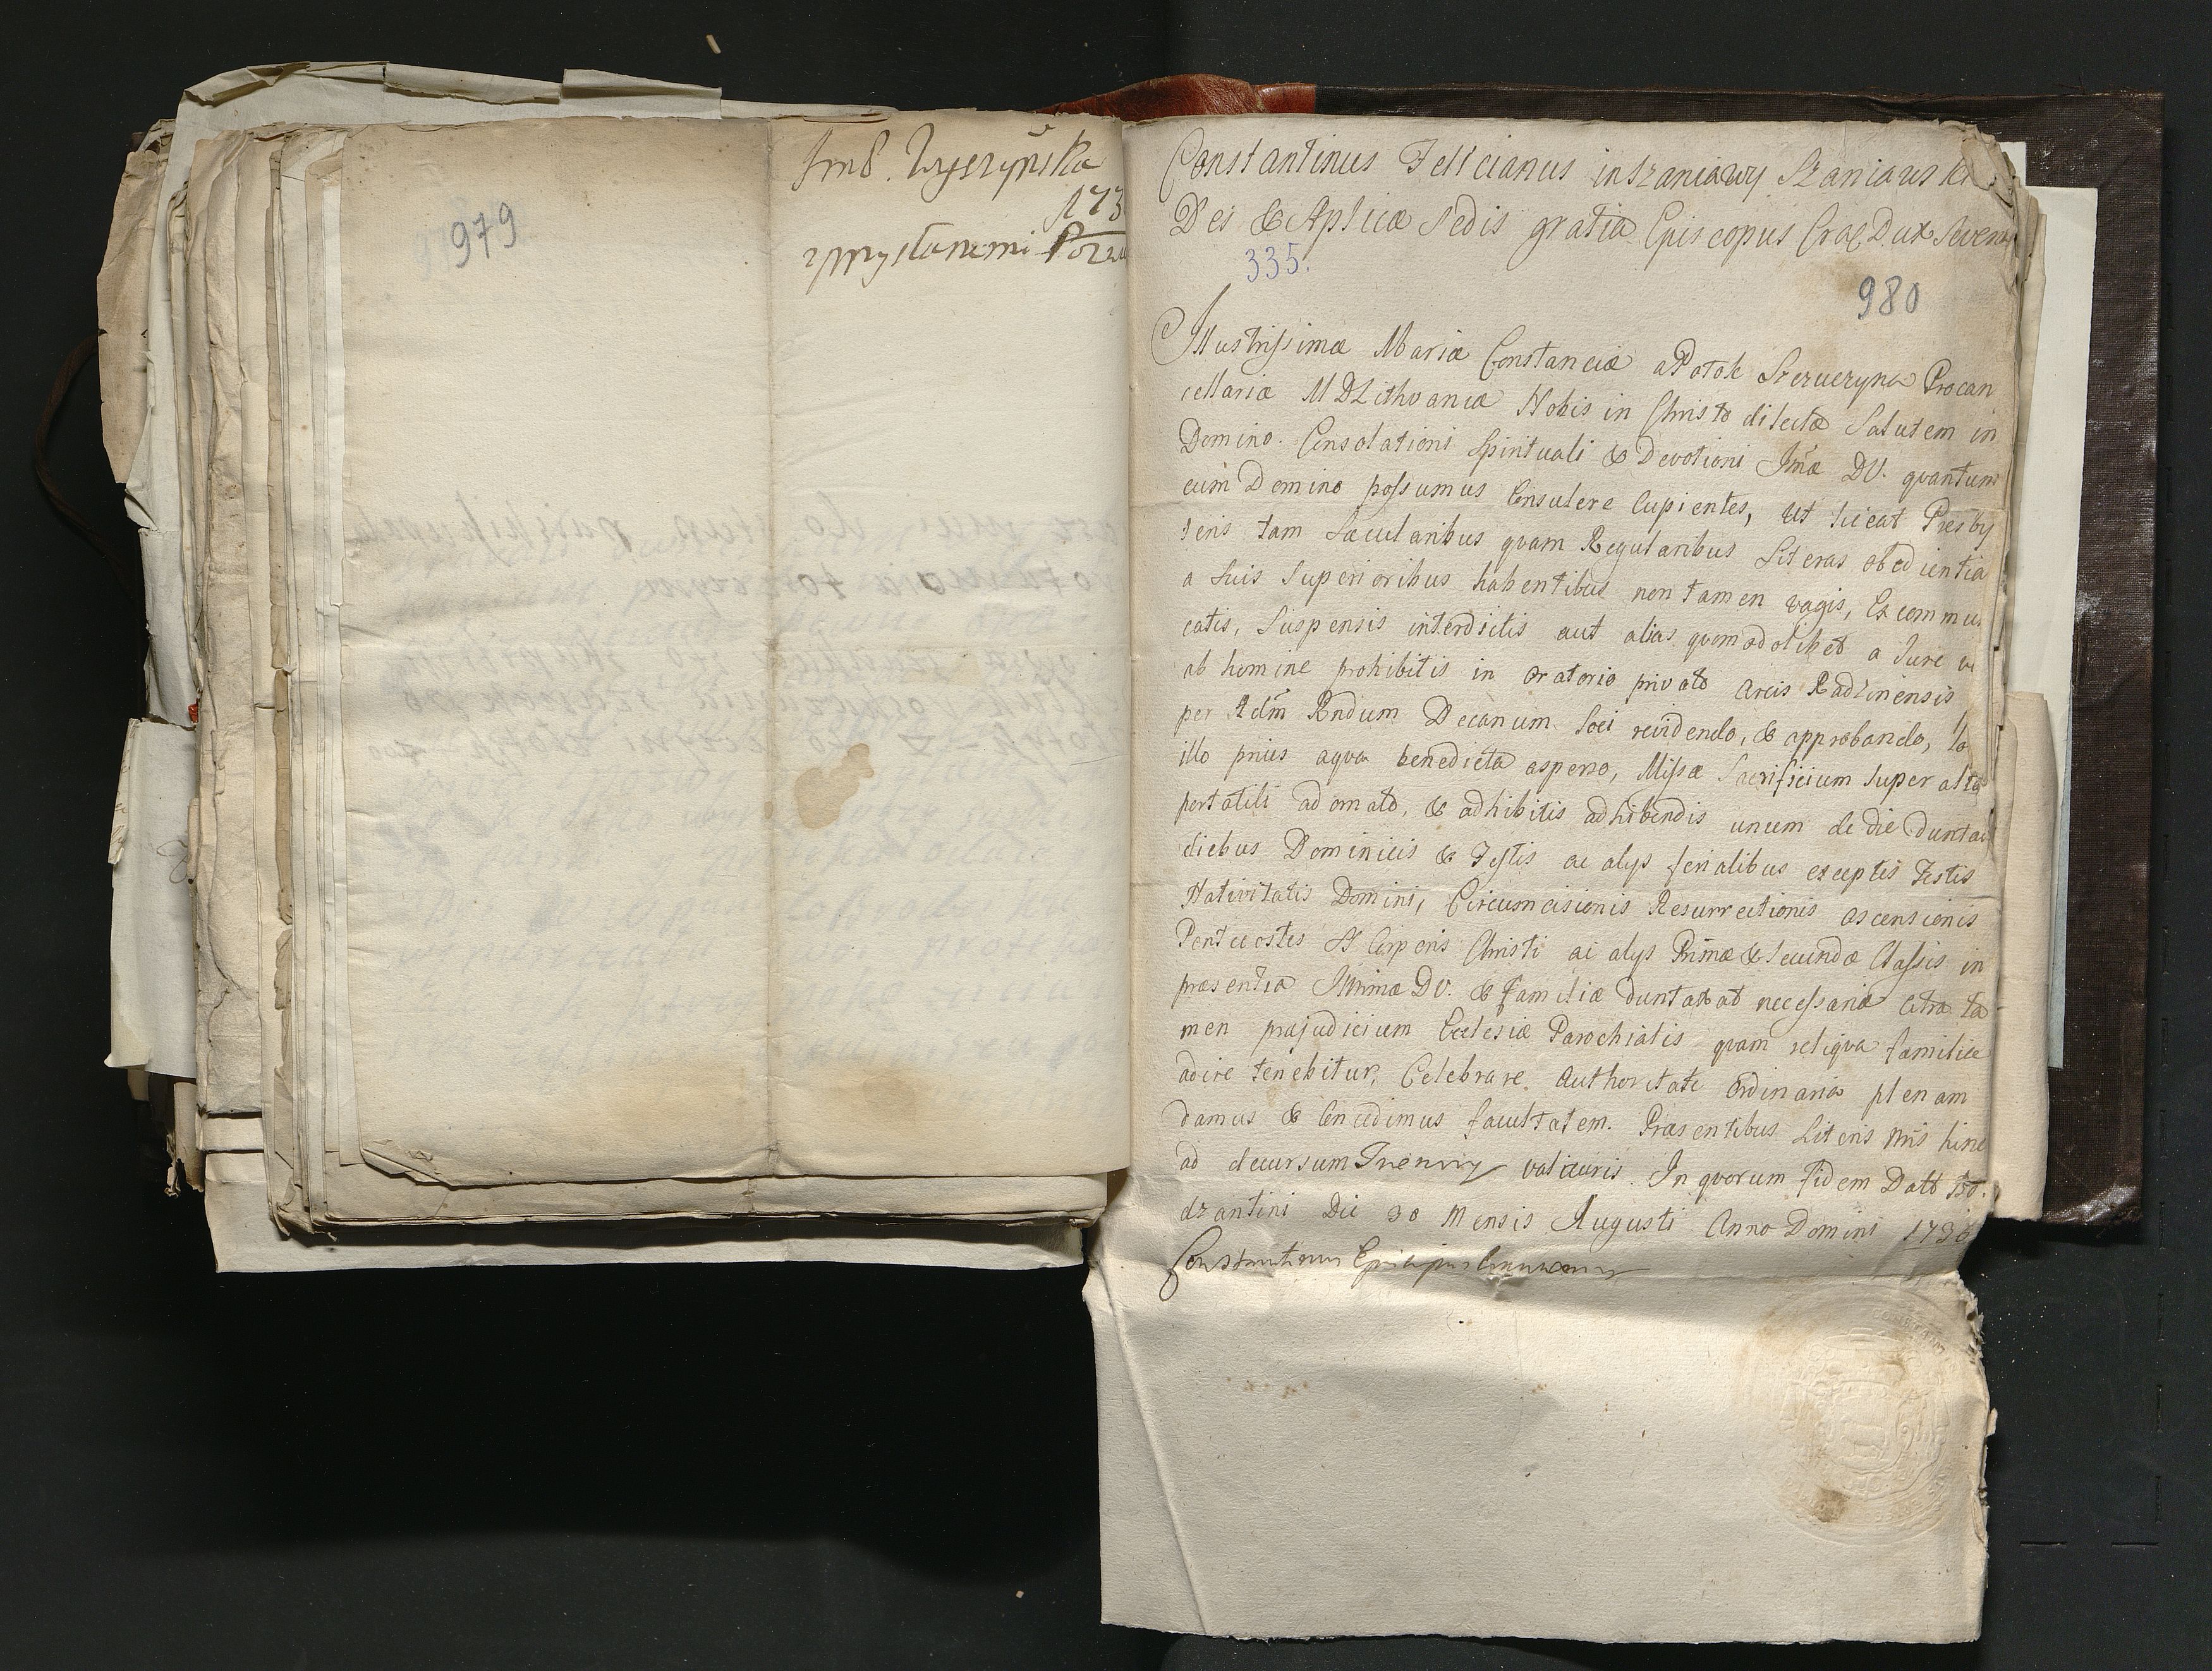 979
173
Constantinus Felicianus in Szaniawy Szaniawski
Dei & Aplicæ Sedis gratia Episcopus Crac Dux Severiæ
335.
980
Illustrissimæ Mariæ Constanciæ a Potok Procan
cellariæ MDLithvaniæ Nobis in Christo dilectæ Salutem in
Domino. Consolationi Spirituali & Devotioni Jmæ DV. quantum
cum Domino possumus Consulere Cupientes, ut liceat Presby
teris tam Sæcularibus quam Regularibus Literas obedientia
a Suis Superioribus habentibus non tamen vagis, Excommu
catis, Suspensis interdictis aut alias quomodolibet a Jure v
ab homine prohibitis in oratorio privato Arcis Radzinensis
per Adm Rndum Decanum loci revidendo, & approbando, lo
illo prius aqua benedicta asperso, Missæ Sacrificium Super alta
portatili adornato, & adhibitis adhibendis unum de die duntax
diebus Dominicis & Festis ac alys ferialibus exceptis Festis
Nativitatis Domini, Circumcisionis Resurrectionis ascensionis
Pentecostes & Corporis Christi ac alys Primæ & Secundæ Classis in
præsentia Illmæ DV. & familiæ duntaxat necessariæ citra ta
men præjudicium Ecclesiæ Parochialis quam reliqua familia
adire tenebitur, Celebrare. Authoritate ordinaria plenam
damus & Concedimus facultatem. Præsentibus Literis nris hinc
ad decursum Trienny valituris. In quorum fidem Datt Bo
dzantini Die 30 Mensis Augusti Anno Domini 1730
Constantinus Episcopus Cracoviensis